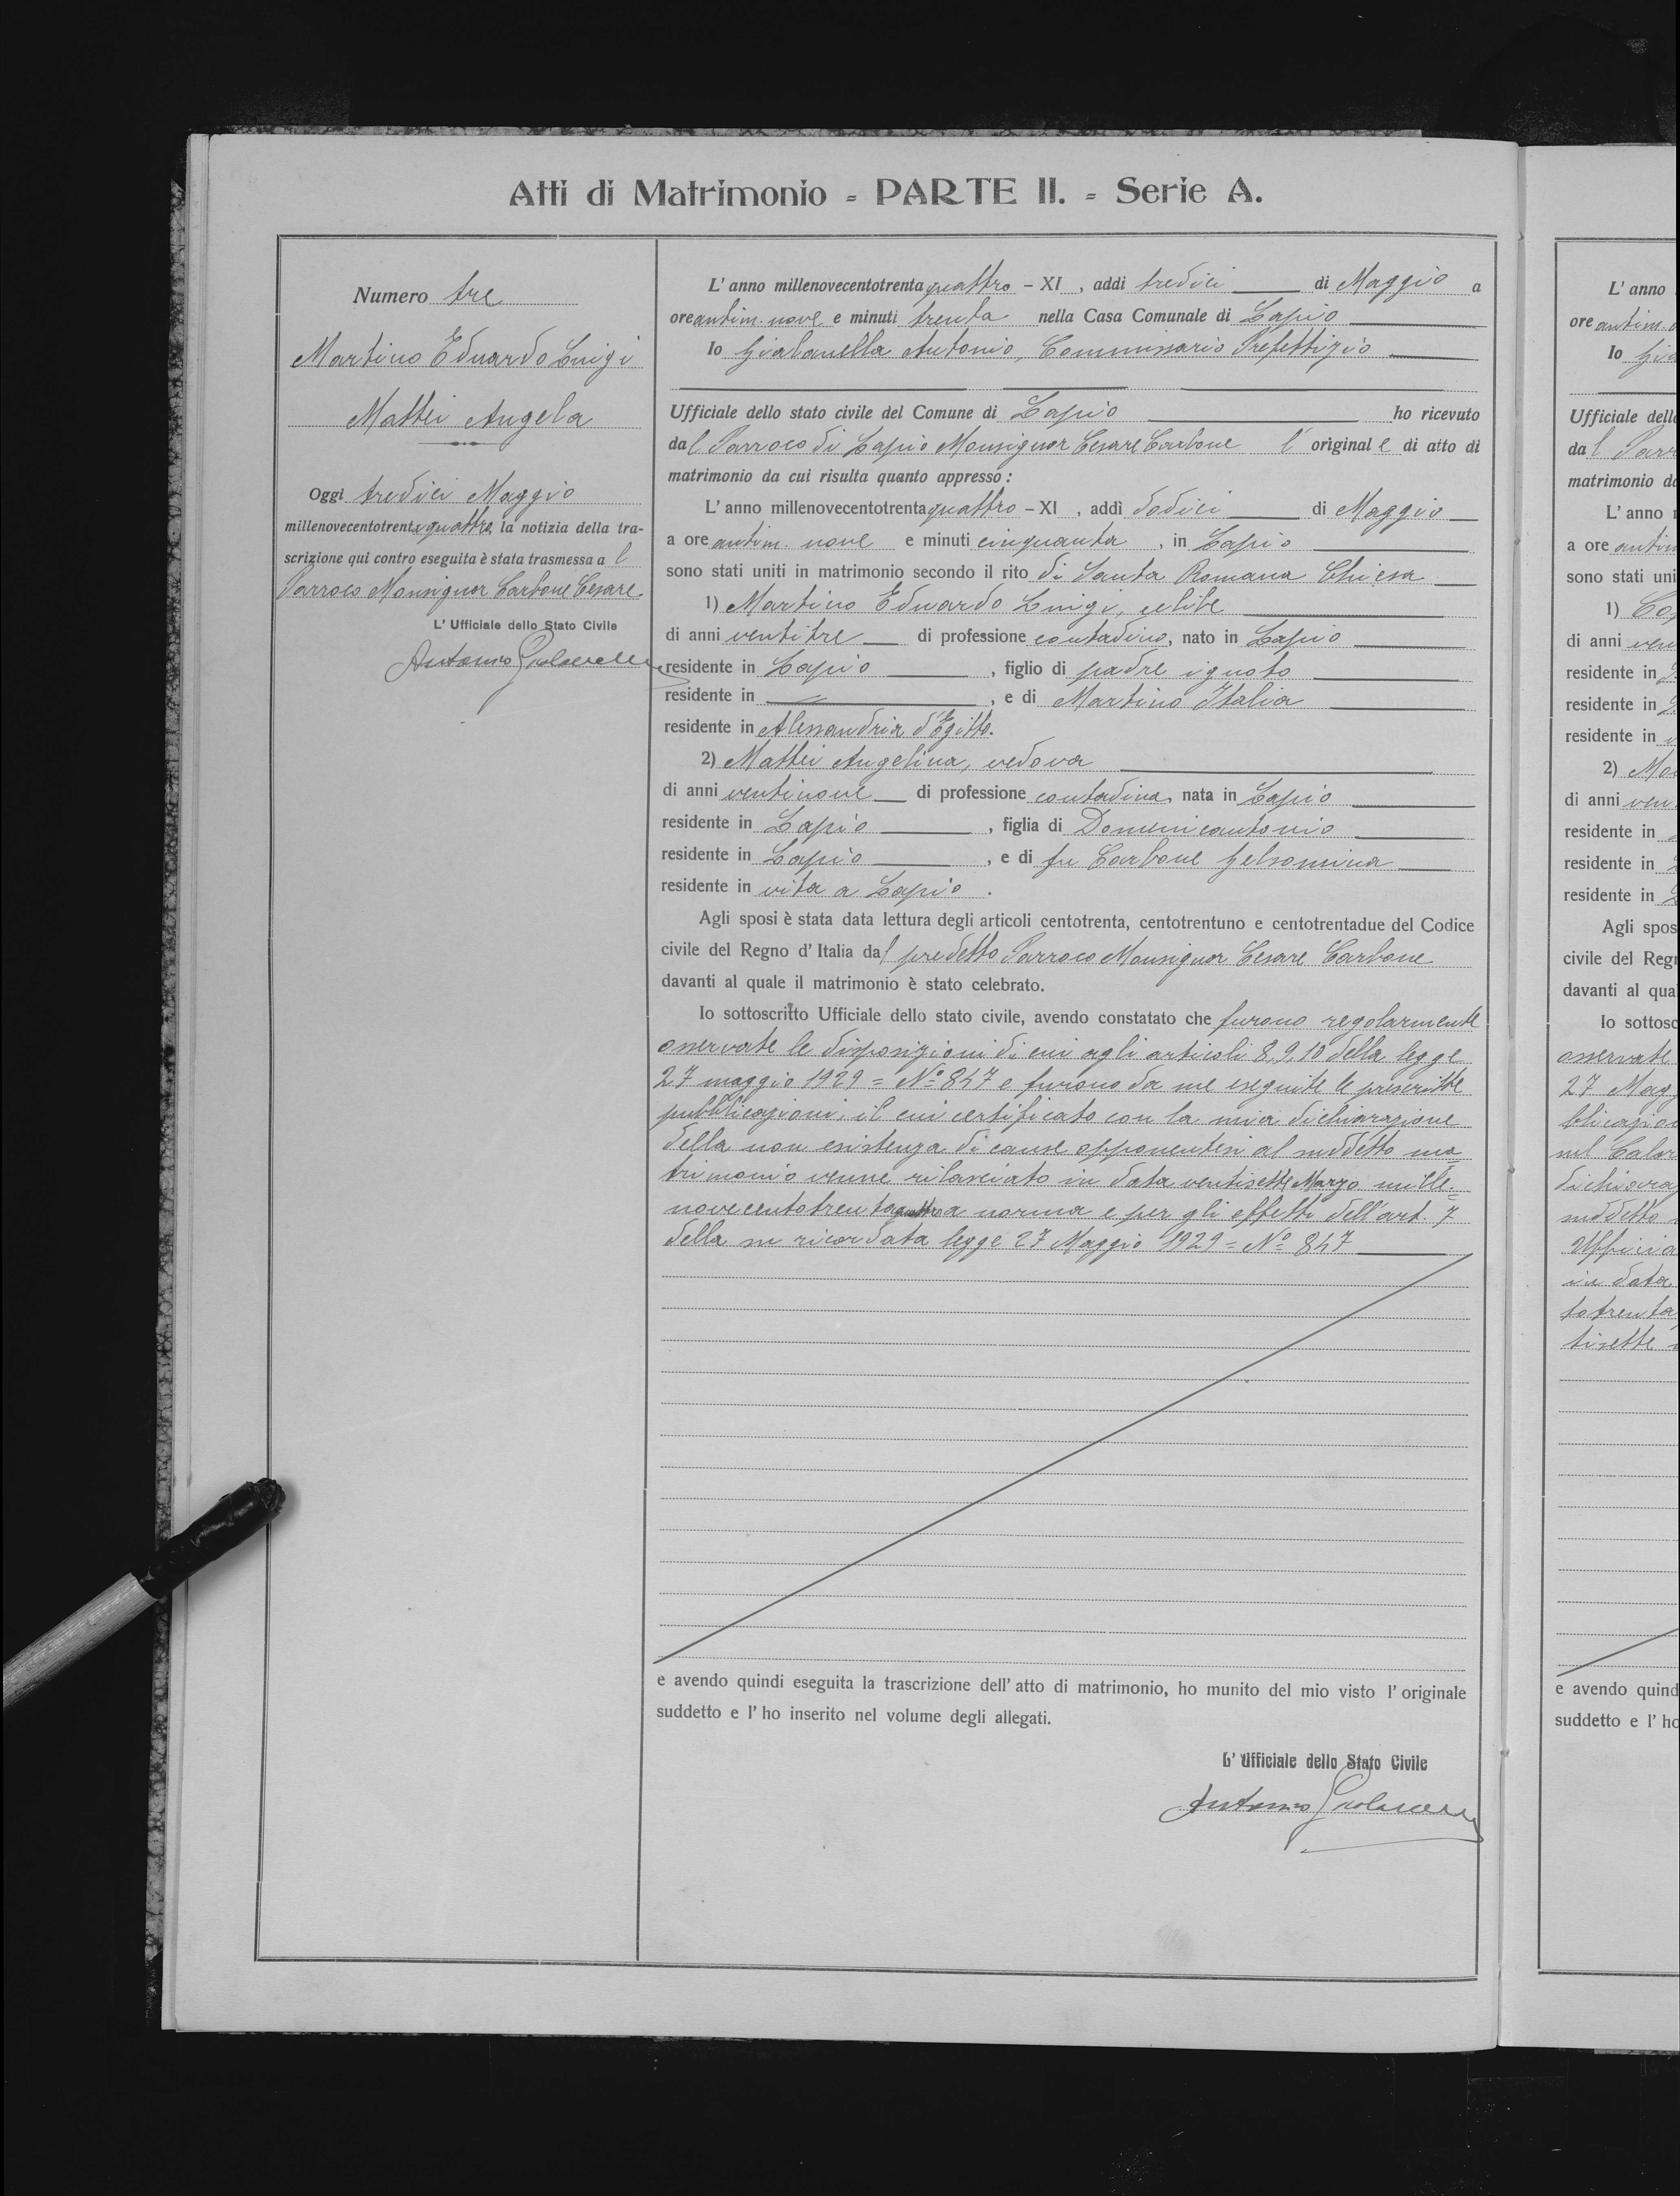 Atti di Matrimonio - PARTE II. - Serie A.
Numero tre
Martino Eduardo Luigi
Mattei Angela
Oggi tredici Maggio
millenovecentotrentaquattro la notizia della tra-
scrizione qui contro eseguita è stata trasmessa a l
Parroco Monsignor Carbone Cesare.
L' Ufficiale dello Stato Civile
Antonio
L' anno millenovecentotrenta quattro - XI , addì tredici di Maggio a
ore antim. nove e minuti trenta nella Casa Comunale di Lapio
Io Gialanella Antonio, Commissario Prefettizio
Ufficiale dello stato civile del Comune di Lapio ho ricevuto
dal Parroco di Lapio Monsignor Cesare Carbone l' originale di atto di
matrimonio da cui risulta quanto appresso :
L' anno millenovecentotrenta quattro - XI , addì dodici di Maggio
a ore antim. nove e minuti cinquanta , in Lapio
sono stati uniti in matrimonio secondo il rito di Santa Romana Chiesa
1) Martino Eduardo Luigi, celibe
di anni ventitre di professione contadino, nato in Lapio
residente in Lapio , figlio di padre ignoto
residente in , e di Martino Italia
residente in Alessandria d'Egitto.
2) Mattei Angelina, vedova
di anni ventinove di professione contadina, nata in Lapio
residente in Lapio , figlia di Domenicantonio
residente in Lapio , e di fu Carbone Gelsomina
residente in vita a Lapio .
Agli sposi è stata data lettura degli articoli centotrenta, centotrentuno e centotrentadue del Codice
civile del Regno d' Italia dal predetto Parroco Monsignor Cesare Carbone
davanti al quale il matrimonio è stato celebrato.
Io sottoscritto Ufficiale dello stato civile, avendo constatato che furono regolarmente
osservate le disposizioni di cui agli articoli 8, 9, 10 della legge
27 maggio 1929 = Nº 847 e furono da me eseguite le prescritte
pubblicazioni, il cui certificato con la mia dichiarazione
della non esistenza di cause opponentesi al suddetto ma
trimonio venne rilasciato in data ventisette Marzo mille=
novecentotrentaquattro a norma e per gli effetti dell'art. 7
della su ricordata legge 27 Maggio 1929 = Nº 847
e avendo quindi eseguita la trascrizione dell' atto di matrimonio, ho munito del mio visto l' originale
suddetto e l' ho inserito nel volume degli allegati.
L' Ufficiale dello Stato Civile
Antonio
L' anno
ore antim.
Io
Ufficiale
dal
matrimonio
L' anno
a ore antim
sono stati
1)
di anni
residente in
residente in
residente in
2)
di anni
residente in
residente in
residente in
Agli spos
civile del Reg
davanti al qua
Io sottosc
osservate
27 Mag
in data
totrenta
tisette
e avendo quind
suddetto e l' ho